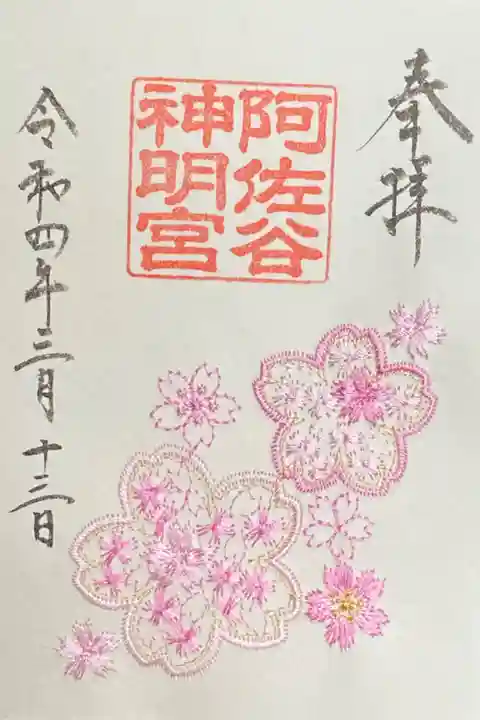 奉拝
阿佐谷
神明宮
令和四年三月十三日